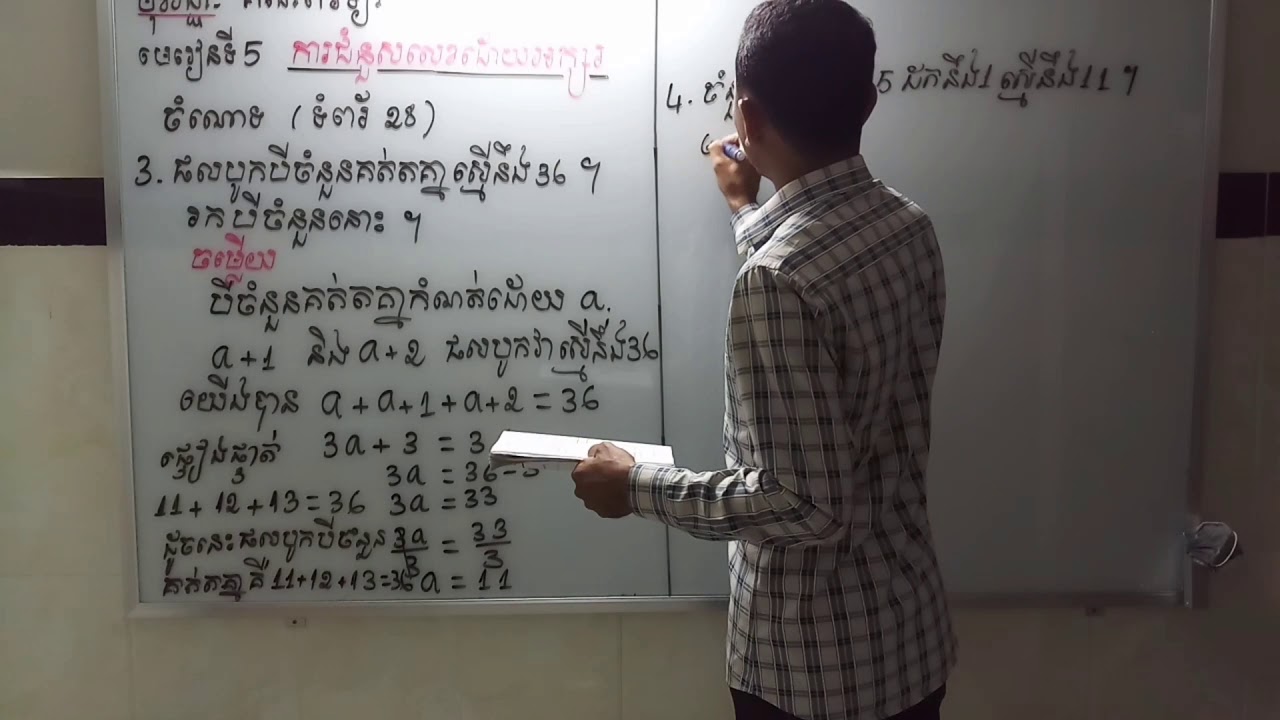 មេរៀនទី 5 ការជំនួសលេខដោយអក្សរ
ចំណោទ (ទំព័រ 28)
3. ផលបូកបីចំនួនគត់តគ្នាស្មើនឹង 36 ។
រកបីចំនួននោះ ។
ចម្លើយ
បីចំនួនគត់តគ្នាកំណត់ដោយ a,
a + 1 និង a + 2 ផលបូកវាស្មើនឹង 36
យើងបាន a + a + 1 + a + 2 = 36
ផ្ទៀងផ្ទាត់ 3a + 3 = 3
3a = 36 -
11 + 12 + 13 = 36 3a = 33
ដូចនេះផលបូកបីចំនួន 3a/3 = 33/3
គត់តគ្នាគឺ 11+12+13=36 a = 11
4. 5 ដកនឹង 1 ស្មើនឹង 11 ។